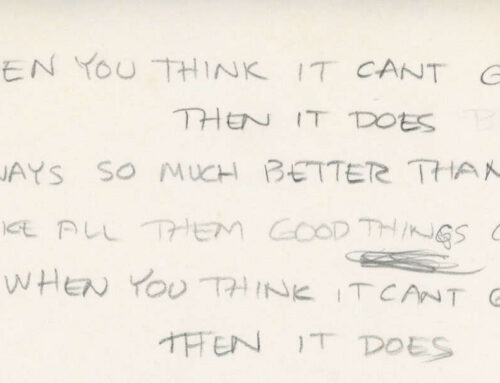 EN YOU THINK IT CANT G
THEN IT DOES
WAYS SO MUCH BETTER THAN
KE ALL THEM GOOD THINGS C
WHEN YOU THINK IT CANT G
THEN IT DOES